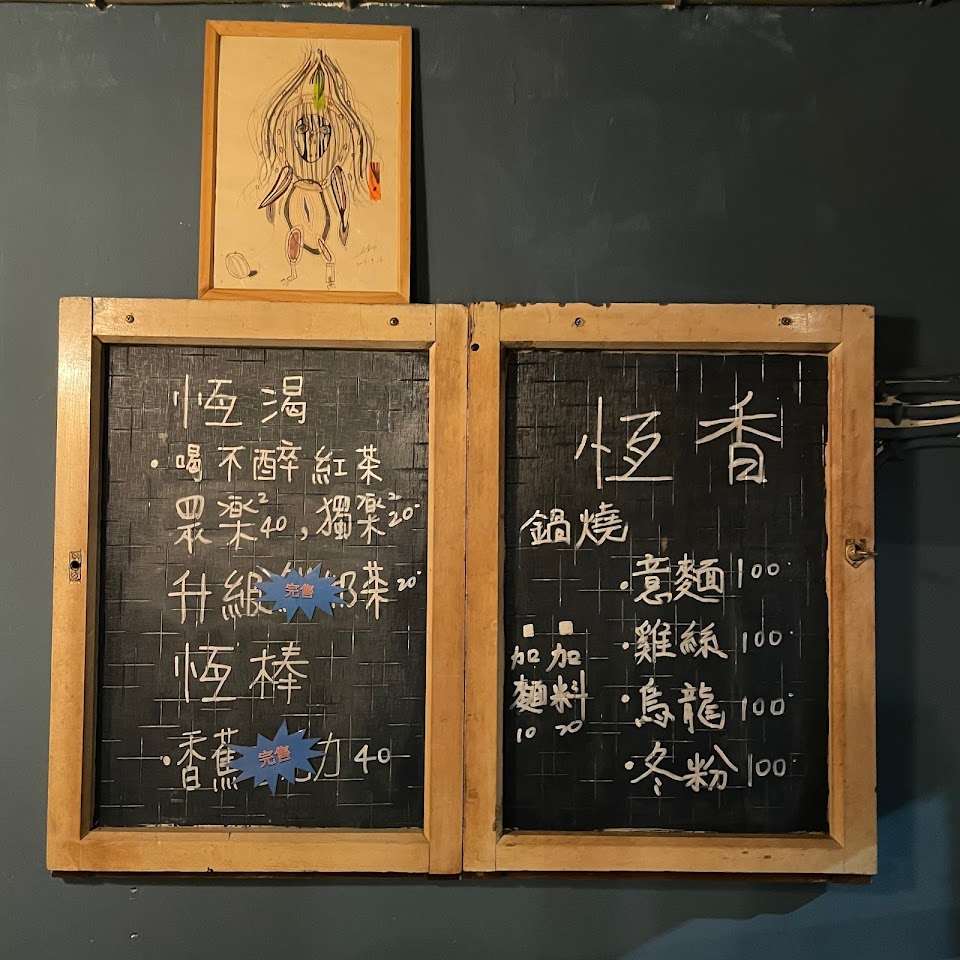 恆渴
·喝不醉紅茶
眾樂²40,獨樂²20-
升級 奶茶20-
完售
恆棒
·香蕉 力40
完售
恆香
鍋燒
·意麵100-
·雞絲100-
·烏龍100-
·冬粉100-
加麵10
加料20